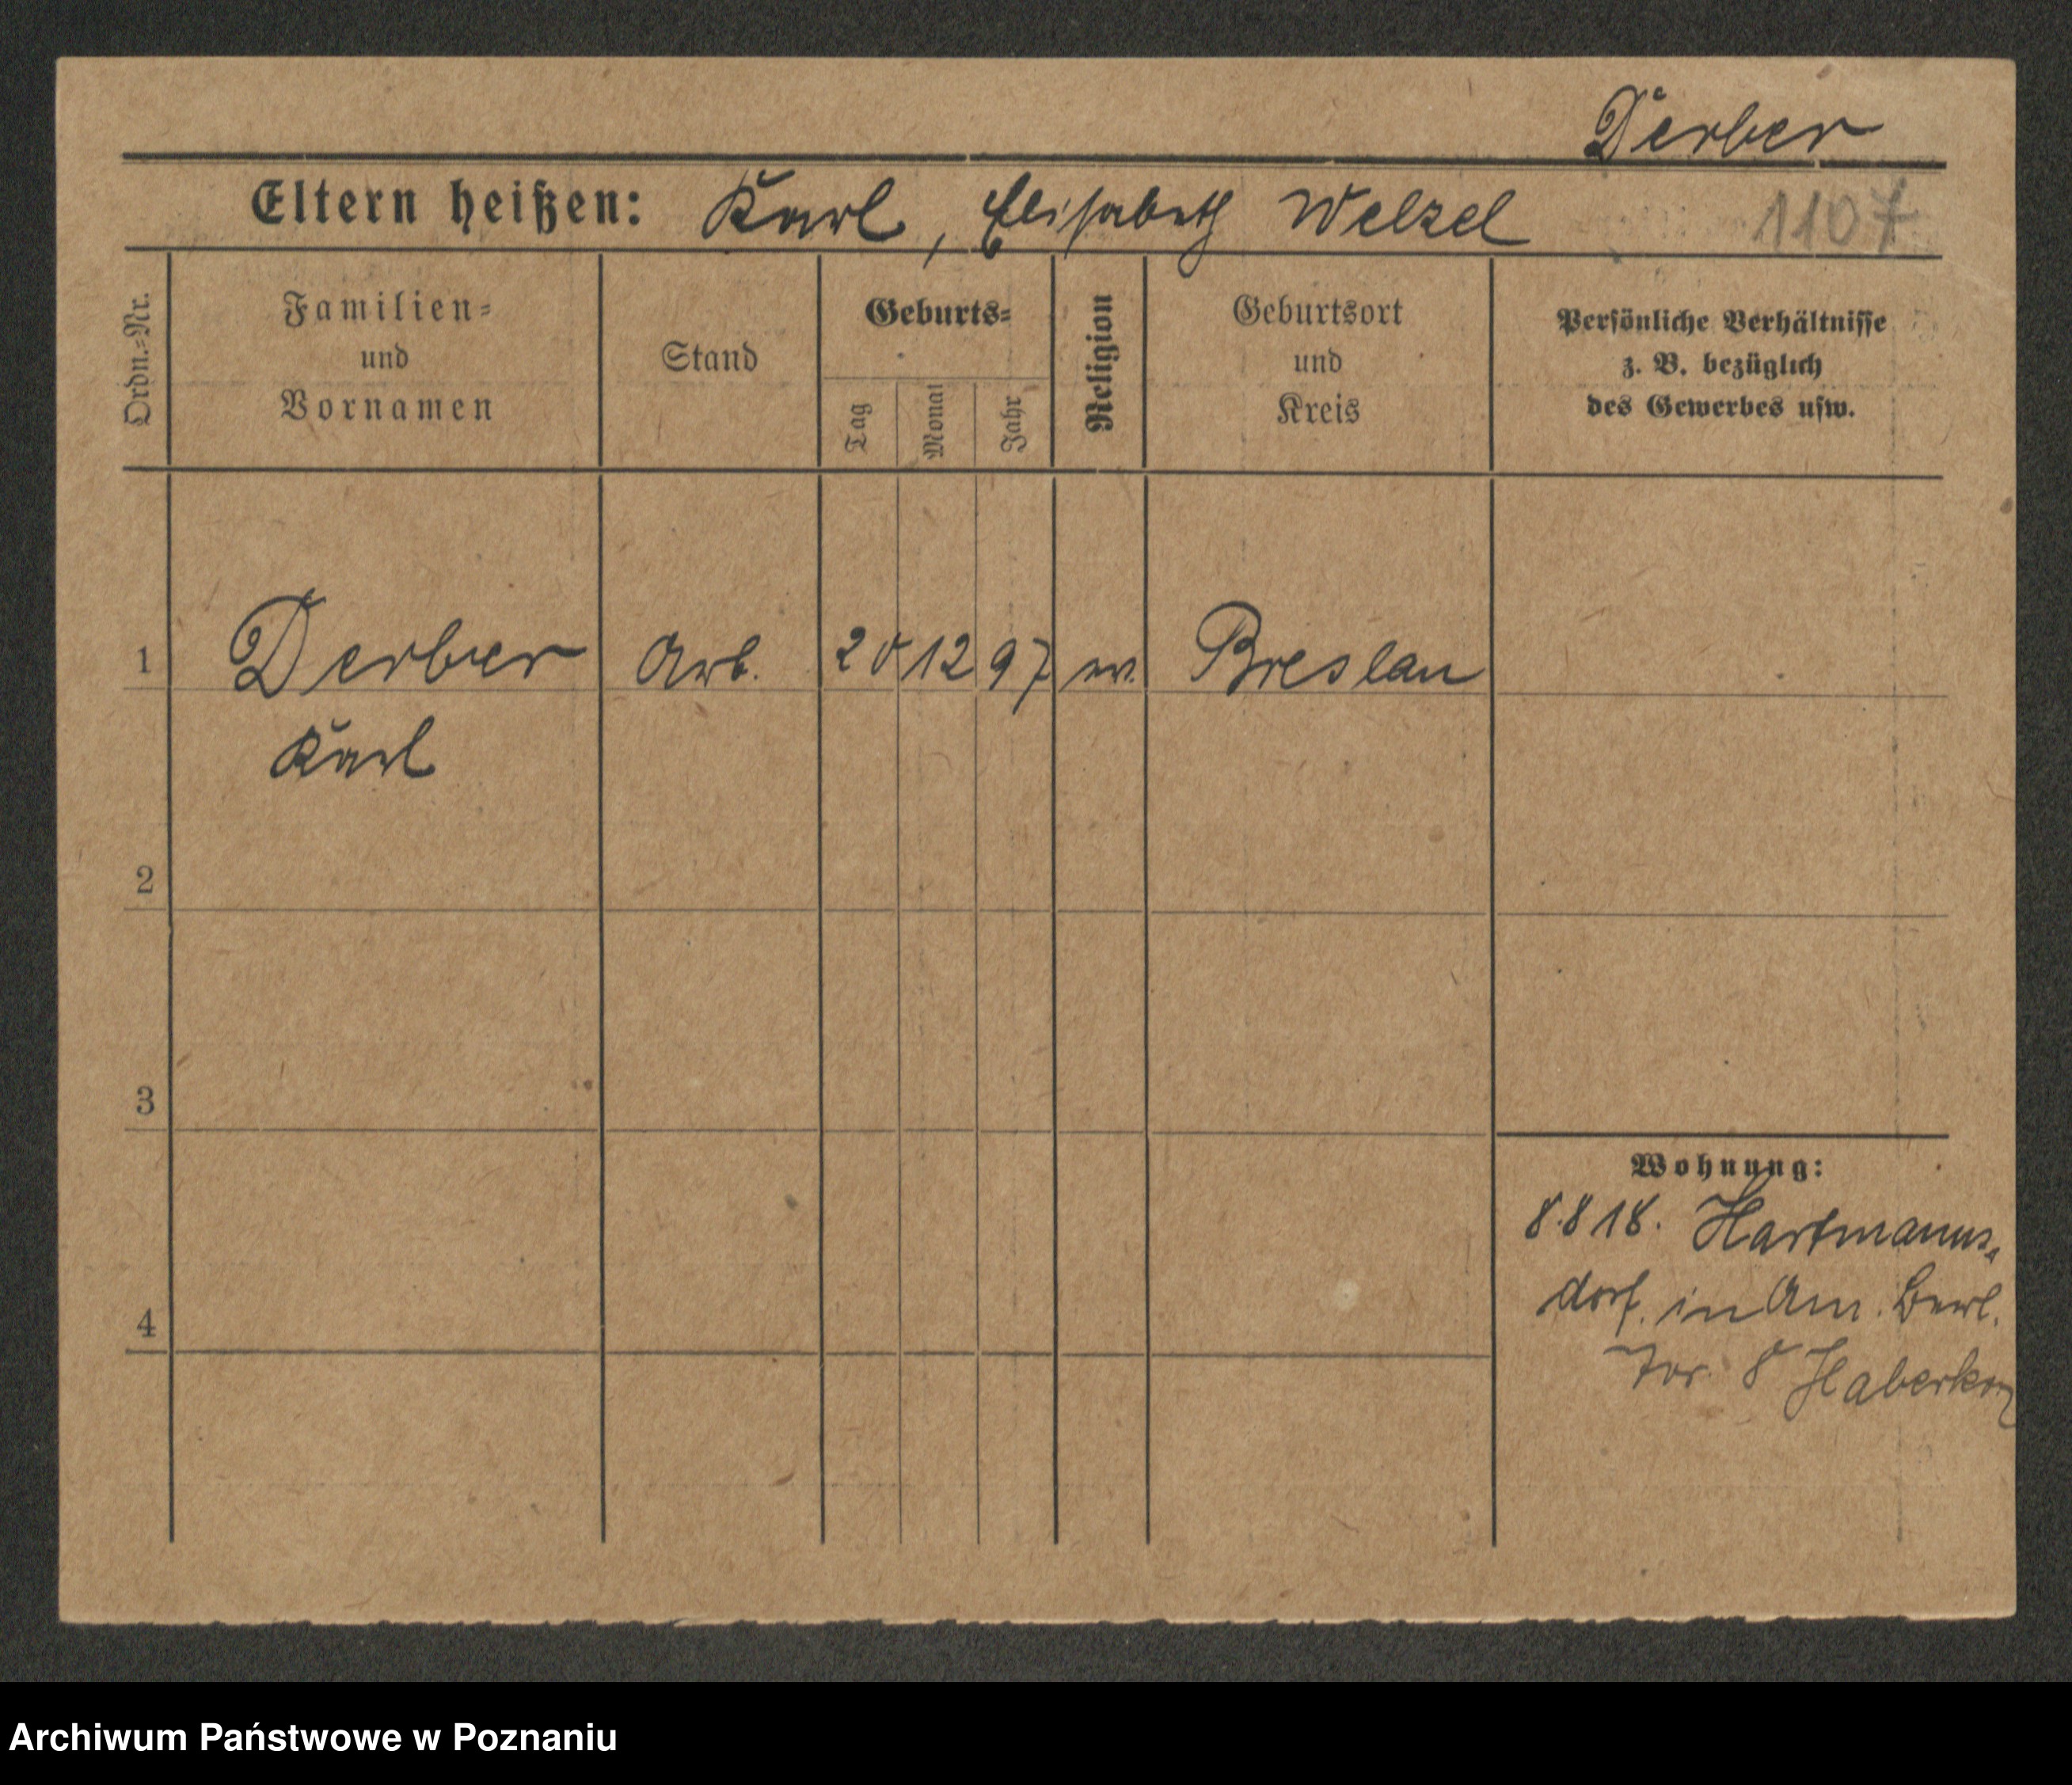 Derber
Eltern heißen: Karl, Elisabeth Welzel 1107
Ordn.-Nr.
Familien-
und
Vornamen
Stand
Geburts-
Tag
Monat
Jahr
Religion
Geburtsort
und
Kreis
Persönliche Verhältnisse
z. B. bezüglich
des Gewerbes usw.
1 Derber Arb. 20 12 97 ev. Breslau
Karl
2
3
4
Wohnung:
8.8 18. Hartmanns-
dorf. in Am.
8 Haberkorn
Archiwum Państwowe w Poznaniu